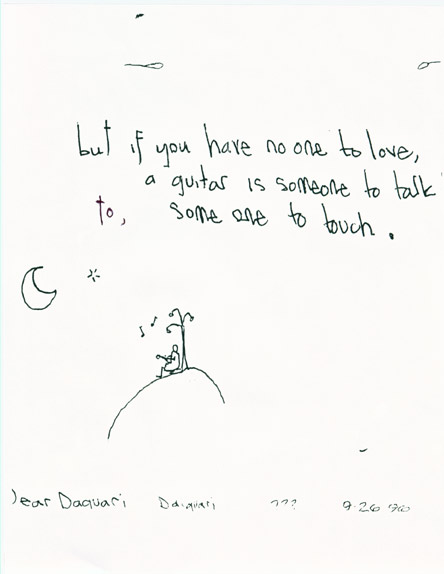 but if you have no one to love,
a guitar is someone to talk
to, some one to touch.
Dear Daquari Daiquari ??? 9-26